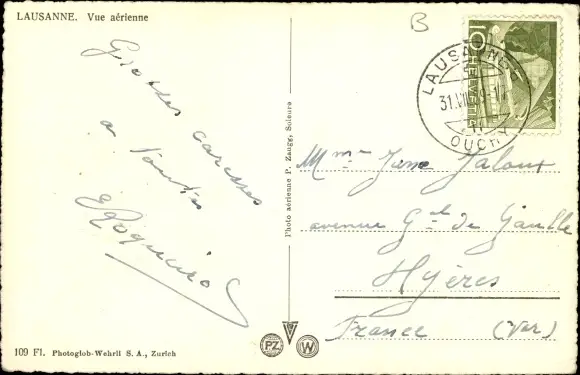 LAUSANNE. Vue aérienne
B
10
HELVETIA
LAUSANNE
31.VIII
OUCHY
Grosses caresses
a toutes
Photo aérienne P. Zaugg, Soleure
Mme Jaloux
avenue Gal de Gaulle
Hyères
France (Var)
PZ W
109 Fl. Photoglob-Wehrli S. A., Zurich